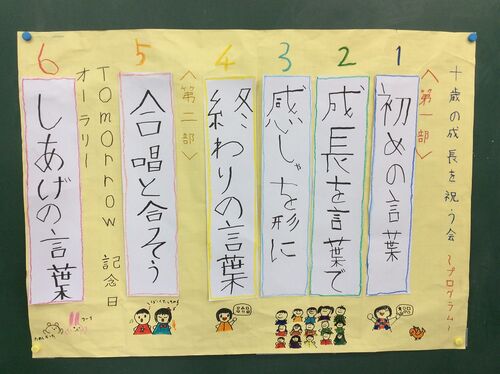 十歳の成長を祝う会 〜プログラム〜
〈第一部〉
1
初めの言葉
2
成長を言葉で
3
感しゃを形に
4
終わりの言葉
〈第二部〉
5
合唱と合そう
TOMORROW 記念日
オーラリー
6
しあげの言葉